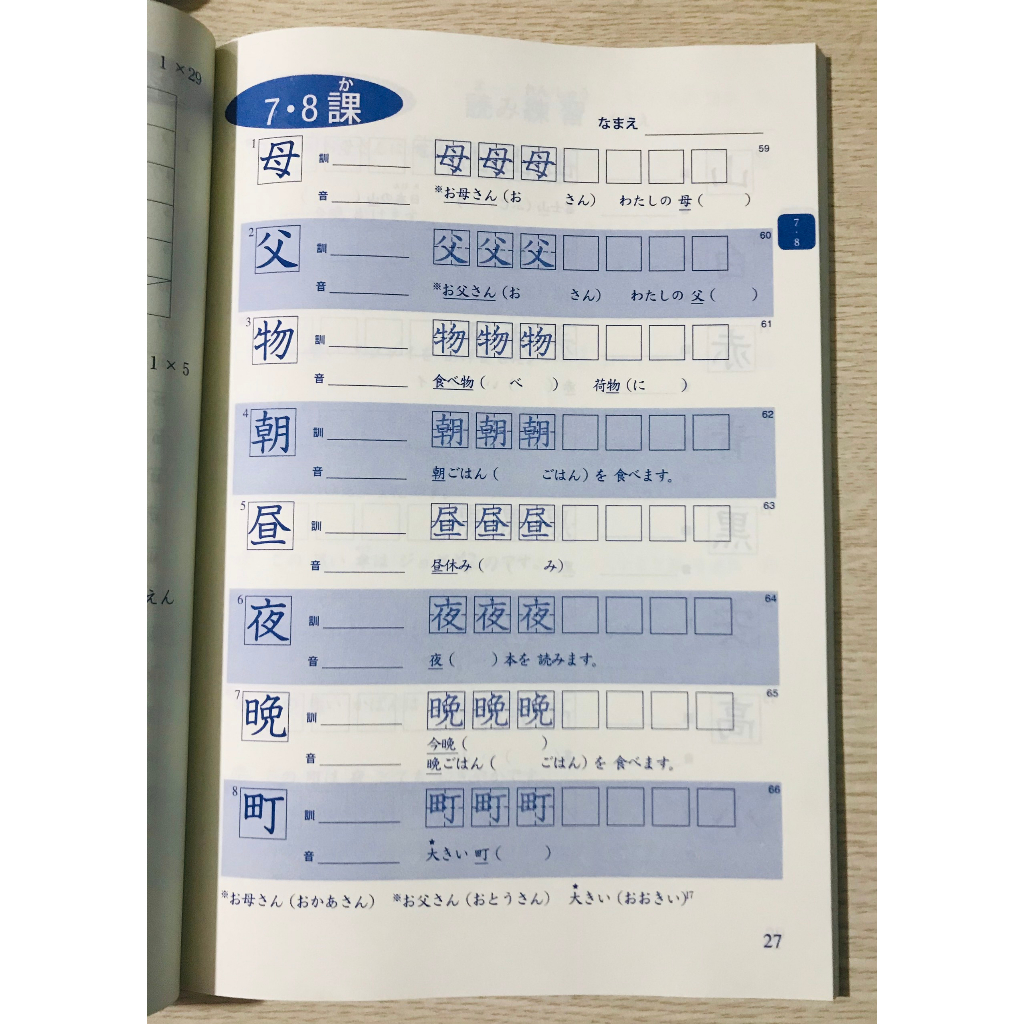 1×29
1×5
えん
か
7・8課
なまえ
7・8
1 母 訓 母 母 母 59
音 ※お母さん(お さん) わたしの 母( )
2 父 訓 父 父 父 60
音 ※お父さん(お さん) わたしの 父( )
3 物 訓 物 物 物 61
音 食べ物( べ ) 荷物(に )
4 朝 訓 朝 朝 朝 62
音 朝ごはん( ごはん)を 食べます。
5 昼 訓 昼 昼 昼 63
音 昼休み( み)
6 夜 訓 夜 夜 夜 64
音 夜( )本を 読みます。
7 晩 訓 晩 晩 晩 65
今晩( )
音 晩ごはん( ごはん)を 食べます。
8 町 訓 町 町 町 66
音 ★大きい 町( )
※お母さん(おかあさん) ※お父さん(おとうさん) ★大きい(おおきい)17
27